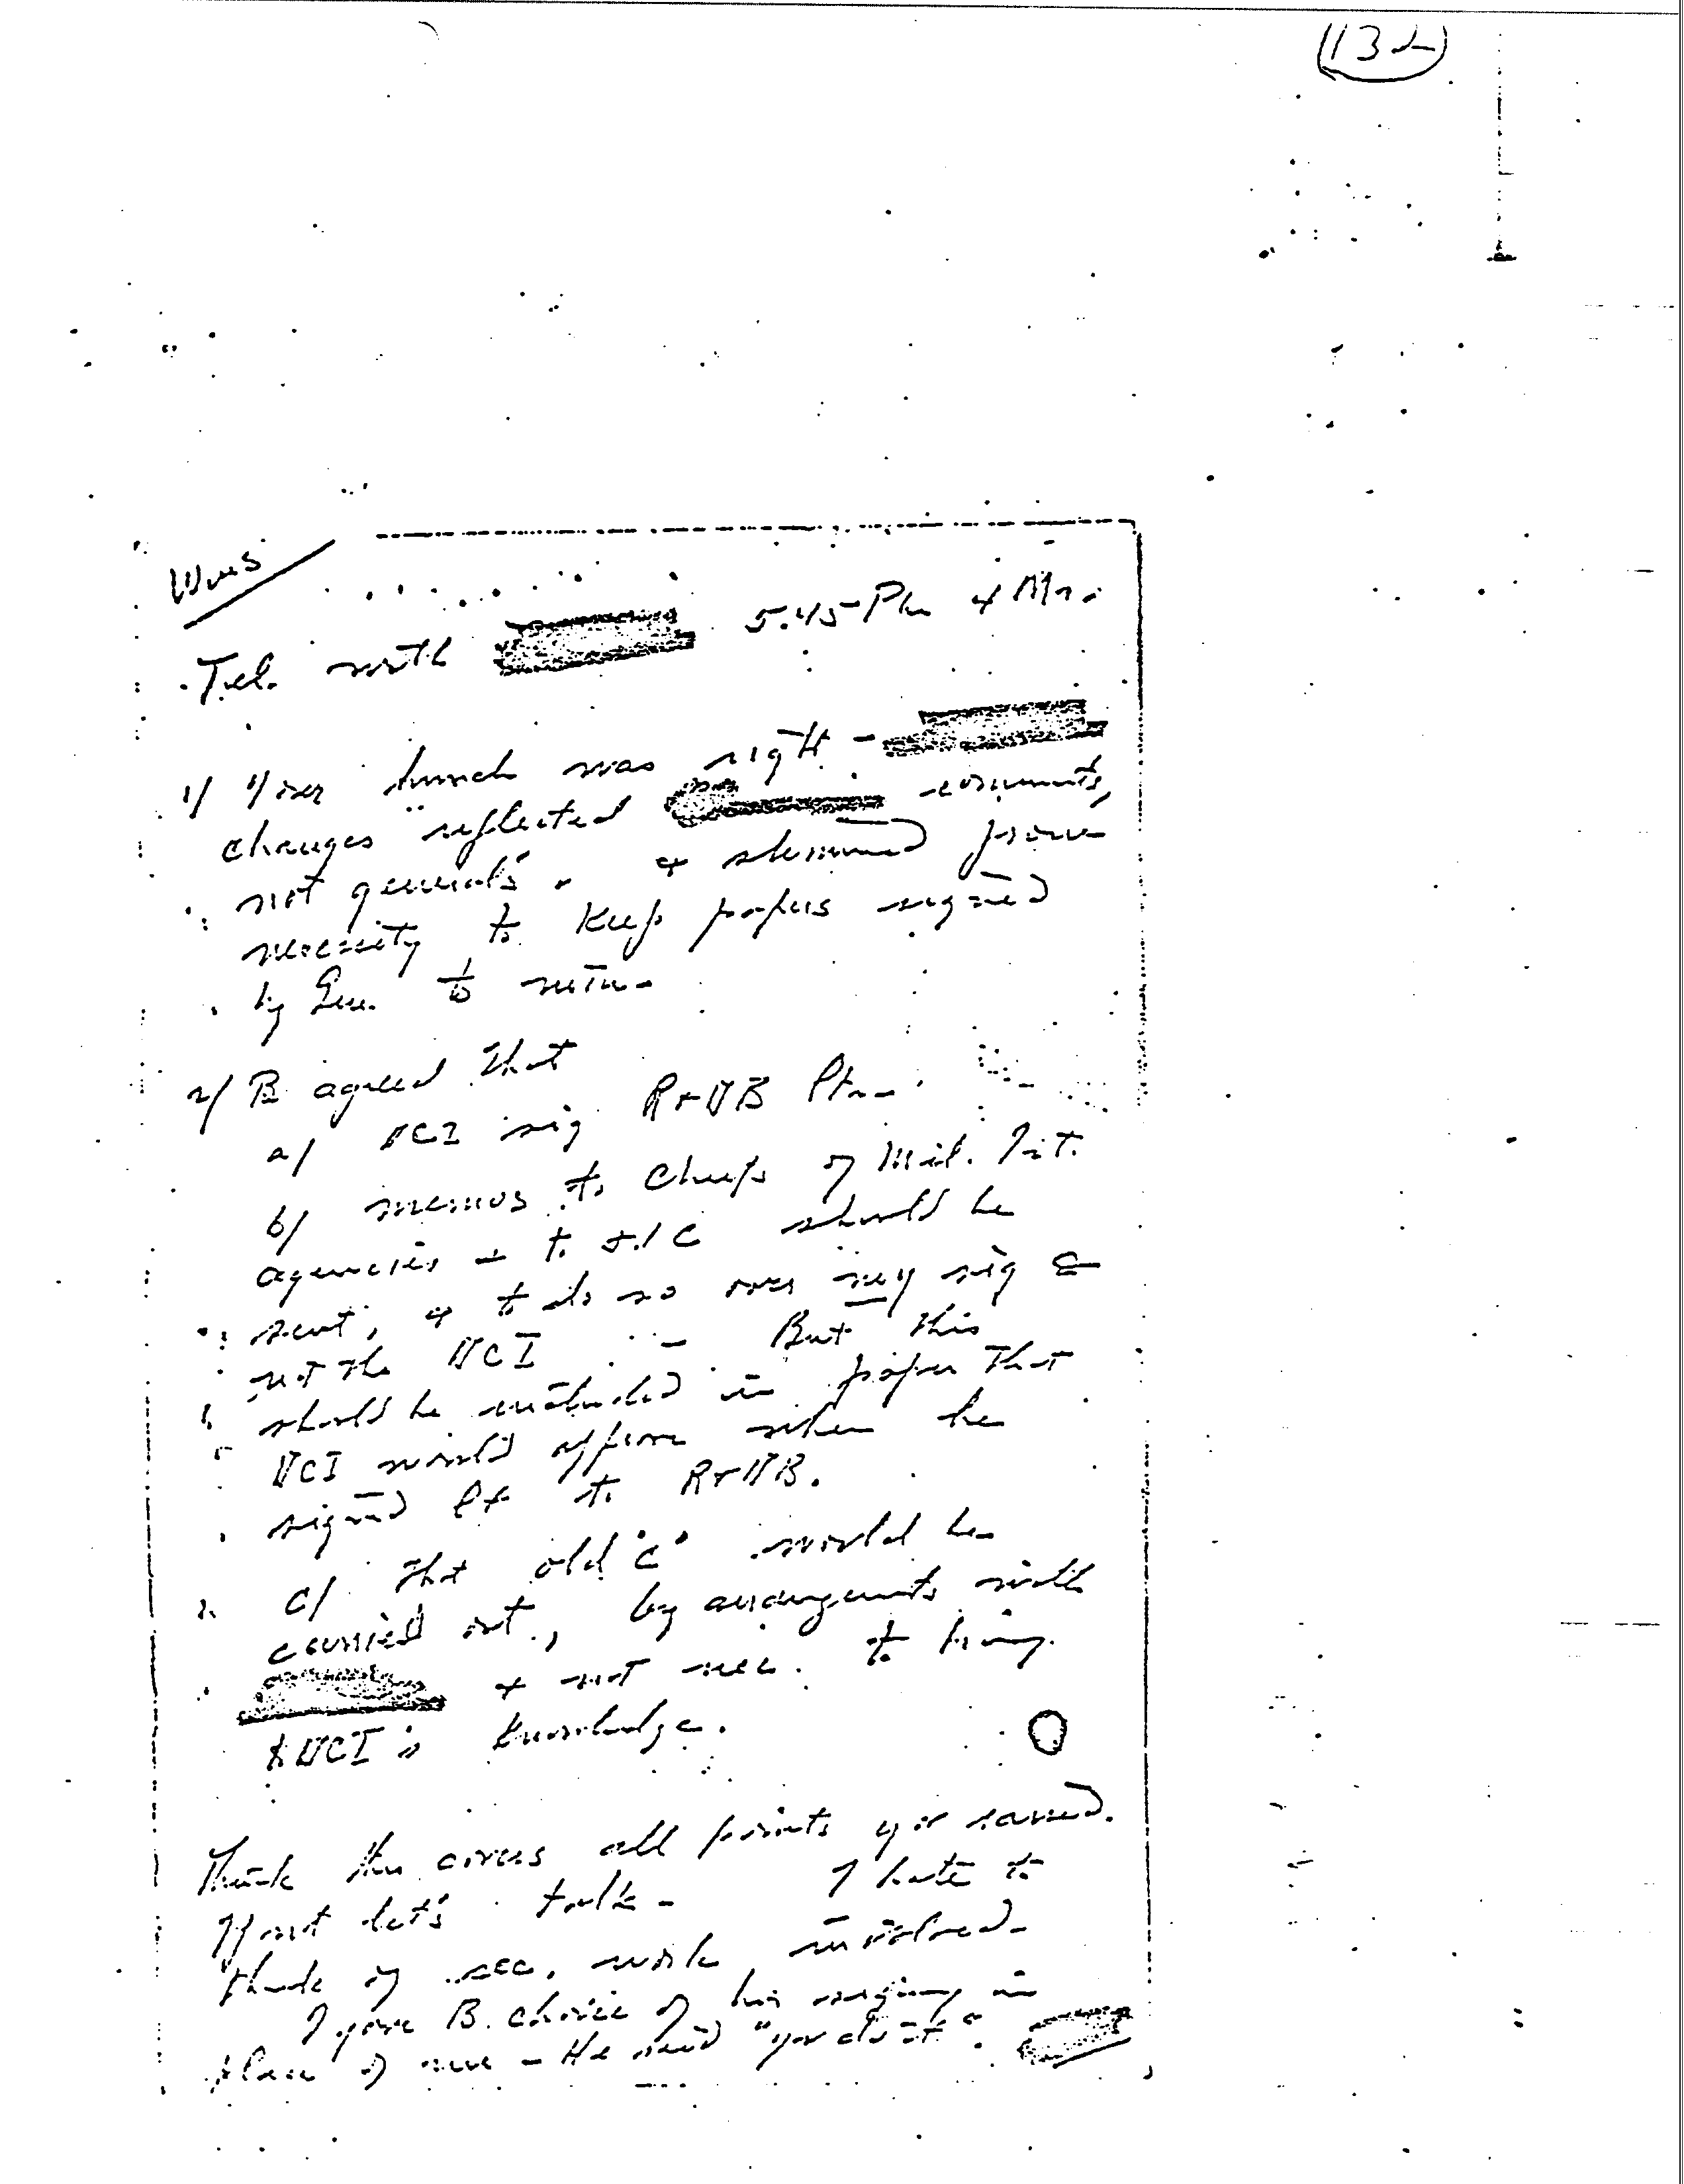 (132)
Tel. with 5:45 Pm 4 Mr.
1/ Your hunch was right -
changes "reflected comments,
not general's" - & stemmed from
necessity to keep papers signed
by Gen. to min.
2/ B agreed that
a/ DCI sig R+DB
b/ memos to Chiefs of Mil. Int.
agencies + to should be
sent, & to do so over my sig &
not the DCI - But this
should be included in paper that
DCI would approve when he
signed to R+DB.
c/ That old "C" would be
carried out, by arrangements with
& not nec. to bring
to DCI's knowledge.
Think this covers all points you raised.
If not let's talk - I hate to
think of sec. work involved -
I gave B. choice of his signing in
place of me - He said "you do it".